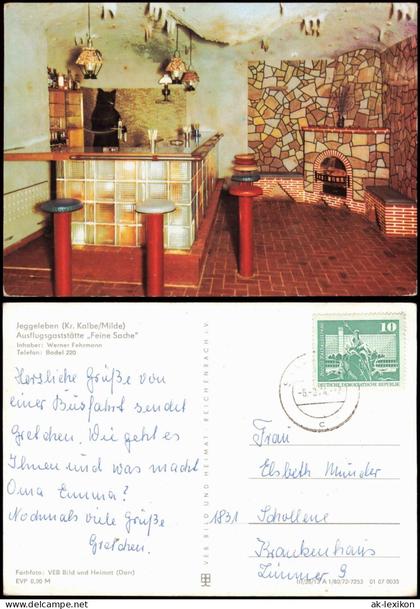 Jeggeleben (Kr. Kalbe/Milde)
Ausflugsgaststätte „Feine Sache"
Inhaber: Werner Fehrmann
Telefon: Badel 220
Herzliche Grüße von
einer Busfahrt sendet
Gretchen. Wie geht es
Ihnen und was macht
Oma Emma?
Nochmals viele Grüße
Gretchen.
Farbfoto: VEB Bild und Heimat (Darr)
EVP 0,30 M
VEB BILD UND HEIMAT REICHENBACH i. V.
10
DEUTSCHE DEMOKRATISCHE REPUBLIK
c
Frau
Elsbeth Münder
1831 Schollene
Krankenhaus
Zimmer 9
A 1/80/72-7253 01 07 0035
ak-lexikon.com